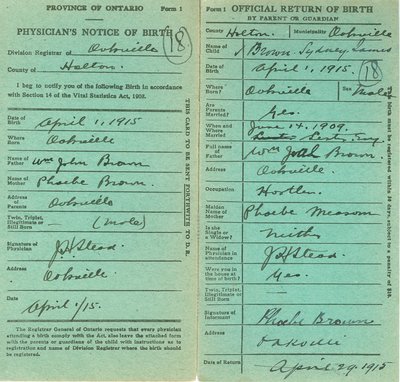 PROVINCE OF ONTARIO Form 1
PHYSICIAN'S NOTICE OF BIRTH
18
Division Registrar of Oakville
County of Halton.
I beg to notify you of the following Birth in accordance
with Section 14 of the Vital Statistics Act, 1908.
Date of Birth April 1, 1915
Where Born Oakville
Name of Father Wm John Brown
Name of Mother Phoebe Brown.
Address of Parents Oakville
Twin, Triplet, Illegitimate or Still Born (Male)
Signature of Physician J H Stead.
Address Oakville
Date April 1/15.
The Registrar General of Ontario requests that every physician
attending a birth comply with the Act, also leave the attached form
with the parents or guardians of the child with instructions as to
registration and name of Division Registrar where the birth should
be registered.
THIS CARD TO BE SENT FORTHWITH TO D.R.
Form 1 OFFICIAL RETURN OF BIRTH
BY PARENT OR GUARDIAN
County Halton. Municipality Oakville
Name of Child Brown. Sydney James
Date of Birth April 1, 1915.
18
Where Born? Oakville Sex Male
Are Parents Married? Yes.
When and Where Married? June 14. 1909.
Eng
Full name of Father Wm John Brown.
Address Oakville.
Occupation
Maiden Name of Mother Phoebe
Is she Single or a Widow? Neither
Name of Physician in attendance J H Stead.
Were you in the house at time of birth? Yes.
Twin, Triplet, Illegitimate or Still Born
Signature of Informant Phoebe Brown
Address Oakville
Date of Return April 29. 1915
The birth must be registered within 30 days, subject to a penalty of $10.